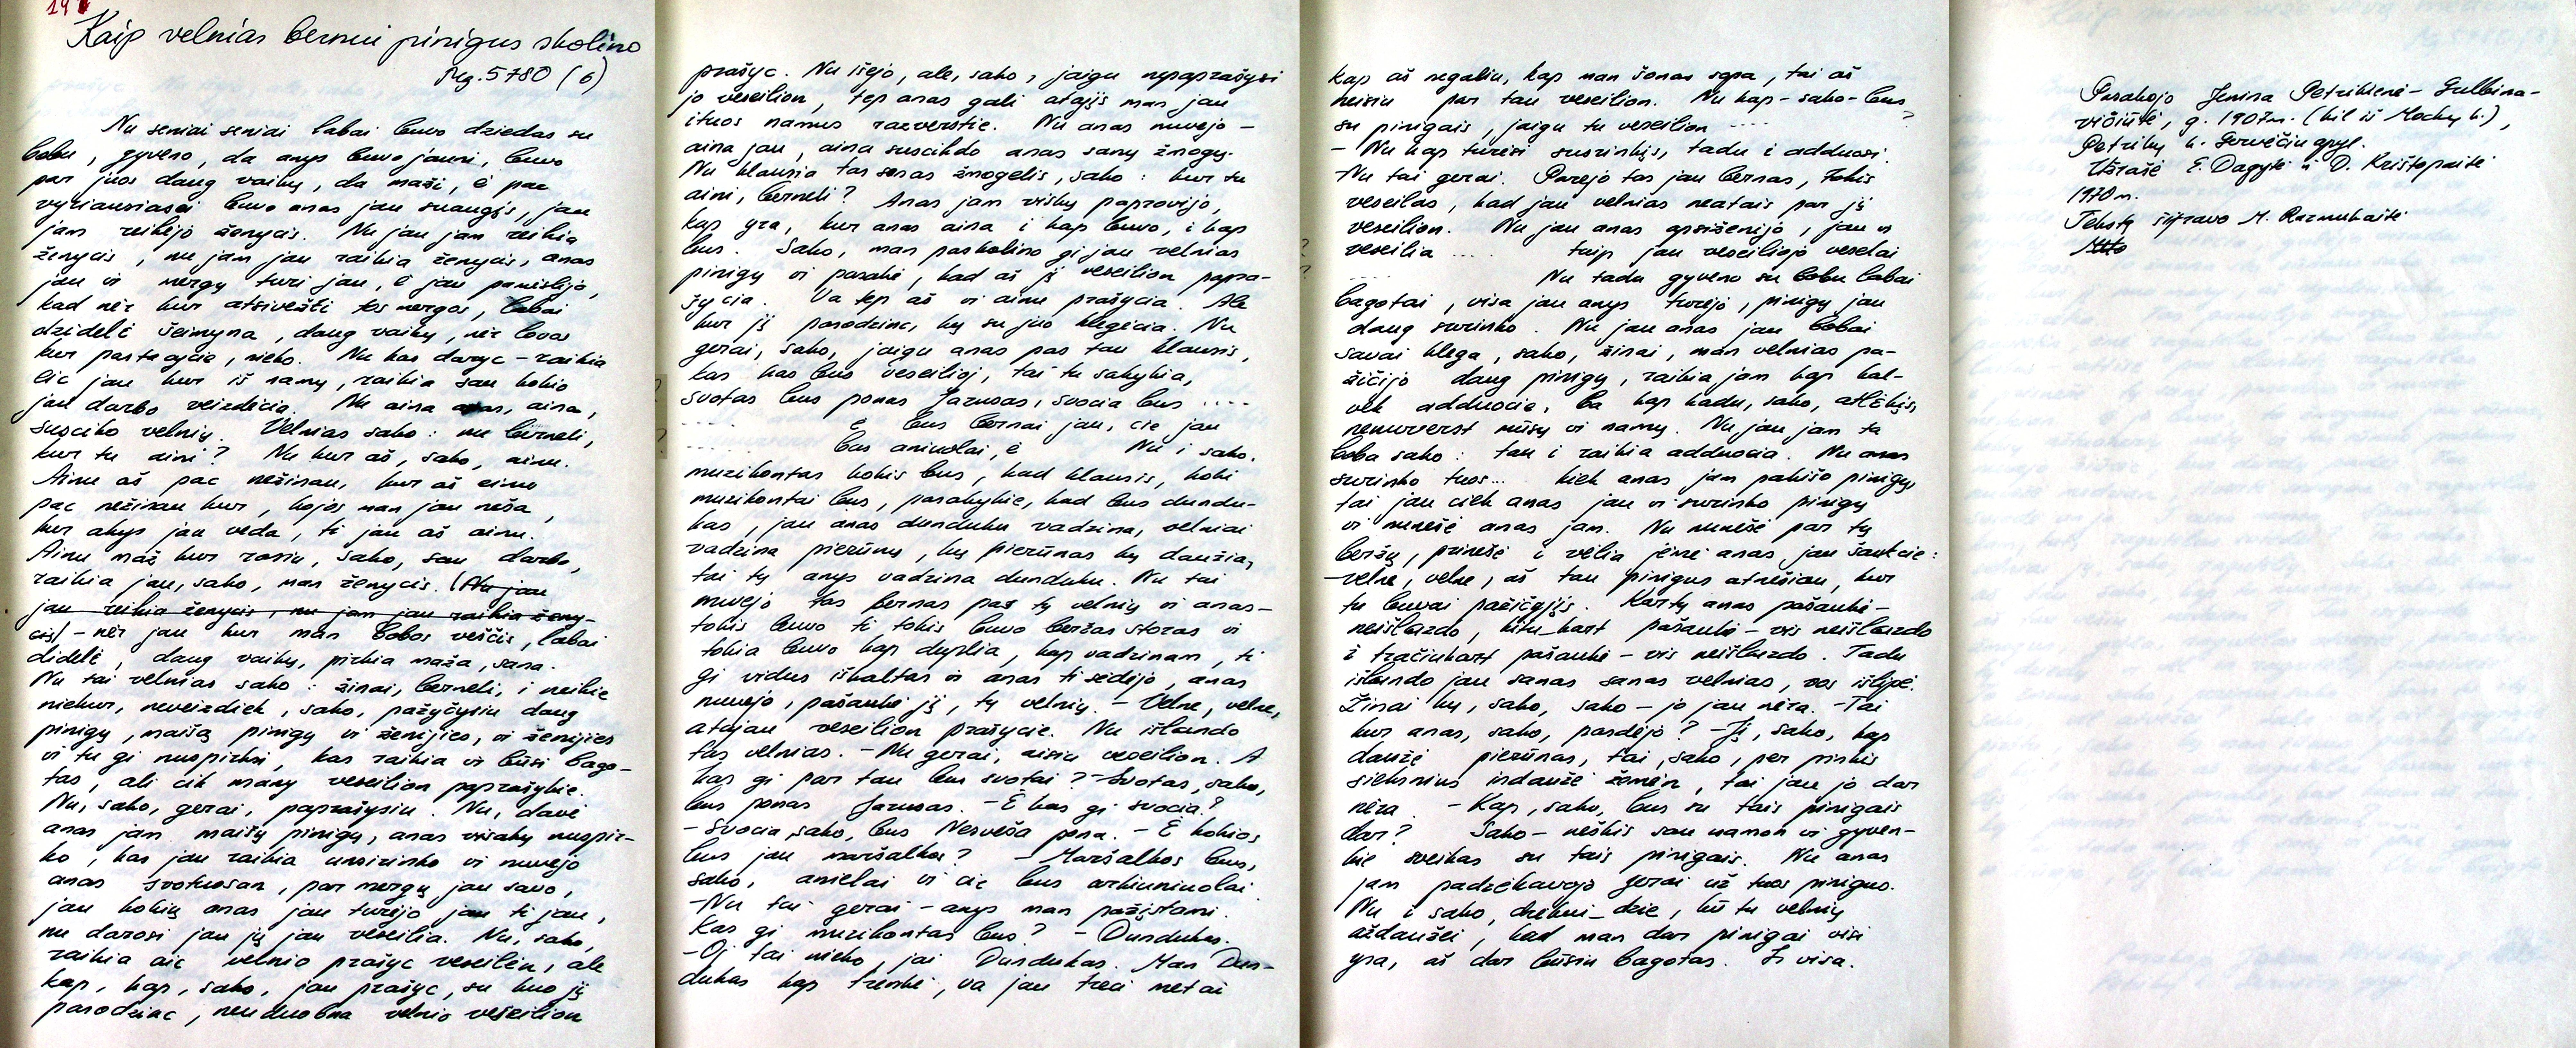 14
Kaip velnias bernui pinigus skolino
Mg. 5780 (6)
Nu seniai seniai labai buvo dziedas su
bobu, gyveno, da anys buvo jauni, buvo
par juos daug vaikų, da maži, ė pac
vyriausiasai buvo anas jau suaugįs, jau
jam reikėjo ženycis. Nu jau jam reikia
ženycis, nu jam jau raikia ženycis, anas
jau ir mergų turi jau, ė jau pamislijo,
kad nėr kur atsivežti tos mergos, labai
dzidelė šeimyna, daug vaikų, nėr lovos
kur pastacycie, nieko. Nu kas daryc – raikia
eic jau kur iš namų, raikia sau kokio
jau darbo veizdėcia. Nu aina anas, aina,
susciko velnių. Velnias sako: nu berneli,
kur tu aini? Nu kur aš, sako, ainu.
Ainu aš pac nežinau, kur aš einu
pac nežinau kur, kojos man jau neša,
kur akys jau veda, ti jau aš ainu.
Ainu maž kur rasiu, sako, sau darbo,
raikia jau, sako, man ženycis. (Nu jau
jau reikia ženycis, nu jam jau raikia ženy-
cis) – nėr jau kur man bobos veščis, labai
didelė, daug vaikų, pirkia maža, sana.
Nu tai velnias sako: žinai, berneli, i neikie
niekur, neveizdiek, sako, pažyčysiu daug
pinigų, maišą pinigų vi ženijies, vi ženijies
vi tu gi nuspirksi, kas raikia vi būsi bago-
tas, ali cik many veseilion paprašykie.
Nu, sako, gerai, paprašysiu. Nu, davė
anas jam maišų pinigų, anas visakų nuspir-
ko, kas jau raikia susirinko vi nuvejo
anas svotuosan, par mergų jau savo,
jau kokių anas jau turėjo jau ti jau,
nu darosi jau jų jau veseilia. Nu, sako,
raikia aic velnio prašyc veseilėn, ale
kap, kap, sako, jau prašyc, su kuo jį
parodzinc, neuduobna velnio veseilion
prašyc. Nu išejo, ale, sako, jaigu nepaprašysi
jo veseilion, tep anas gali atajįs man jau
ituos namus razverstie. Nu anas nuvejo –
aina jau, aina susciko anas sanų žmogų.
Nu klausia tas senas žmogelis, sako: kur tu
aini, berneli? Anas jam viskų papravijo,
kap yra, kur anas aina i kap buvo, i kap
bus. Sako, man paskolino gi jau velnias
pinigų vi pasakė, kad aš jį veseilion papra-
šycia. Va tep aš vi ainu prašycia. Ale
kur jį parodzinc, ką su juo klegėcia. Nu
gerai, sako, jaigu anas pas tau klausis,
kas kas bus veseilioj, tai tu sakykia,
svotas bus ponas Jazusas, svocia bus ....
..... ė bus bernai jau, cie jau
..... bus aniuolai, ė Nu i sako,
muzikontas kokis bus, kad klausis, koki
muzikontai bus, pasakykie, kad bus dundu-
kas, jau anas dunduku vadzina, velniai
vadzina pierūnų, ką pierūnas ką daužia,
tai tų anys vadzina dunduku. Nu tai
nuvejo tas bernas pas tų velnių vi anas –
tokis buvo ti tokis buvo beržas storas vi
tokia buvo kap dyplia, kap vadzinam, ti
gi vidus iškaltas vi anas ti sėdėjo, anas
nuvejo, pašaukė jį, tų velnių. – Velne, velne,
atajau veseilion prašycie. Nu išlando
tas velnias. – Nu gerai, aisiu veseilion. A
kas gi par tau bus svotai? – Svotas, sako,
bus ponas Jazusas. – Ė kas gi svocia?
– Svocia, sako, bus Nesveša pona. – Ė kokios
bus jau maršalkos? – Maršalkos bus,
sako, anielai vi cie bus arkiuniuolai
– Nu tai gerai – anys man pažįstami.
Kas gi muzikontas bus? – Dundukas.
– Oi tai nieko, jai Dundukas. Man Dun-
dukas kap trenkė, va jau treci metai
kap aš negaliu, kap man šonas sopa, tai aš
neisiu par tau veseilion. Nu kap – sako – bus
su pinigais, jaigu tu veseilion .... ?
– Nu kap turėsi susirinkįs, tadu i adduosi.
– Nu tai gerai. Parejo tas jau bernas, tokis
veseilas, kad jau velnias neatais par jį
veseilion. Nu jau anas apsiženijo, jau vi
veseilia .... taip jau veseiliojo veselai
..... Nu tadu gyveno su bobu labai
bagotai, visa jau anys turėjo, pinigų jau
daug surinko. Nu jau anas jau bobai
savai klega, sako, žinai, man velnias pa-
žičijo daug pinigų, raikia jam kap kal-
vek adduocie, ba kap kadu, sako, atlėkįs,
nenuverst mūsų vi namų. Nu jau jam ta
boba sako: tau i raikia adduocia. Nu anas
surinko tuos... kiek anas jam pakišo pinigų,
tai jau ciek anas jau vi surinko pinigų
vi nunešė anas jam. Nu nunešė par tų
beržų, prinešė i vėlia jėmė anas jau šaukcie:
– velne, velne, aš tau pinigus atnešiau, kur
tu buvai pažičyjįs. Kartų anas pašaukė –
neišlazdo, kitu kart pašaukė – vis neišlazdo
i tračiukart pašaukė – vis neišlazdo. Tadu
išlando jau sanas sanas velnias, vos išlipė.
Žinai ką, sako, sako – jo jau nėra. – Tai
kur anas, sako, pasdėjo? – Jį, sako, kap
daužė pierūnas, tai, sako, per pinkis
sieksnius indaužė žemėn, tai jau jo dar
nėra. – Kap, sako, bus su tais pinigais
dar? Sako – neškis sau namon vi gyven-
kie sveikas su tais pinigais. Nu anas
jam padzėkavojo gerai už tuos pinigus.
Nu i sako, dzėkui dzie, kū tu velnių
aždaužei, kad man dar pinigai visi
yra, aš dar būsiu bagotas. Ir visa.
Pasakojo Jenina Petrikienė – Gulbina-
vičiūtė, g. 1907m. (kil iš Mockų k.),
Petrikų k. Gervėčių apyl.
Užrašė E. Dagytė ir D. Krištopaitė
1970 m.
Tekstų šifravo M. Razmukaitė